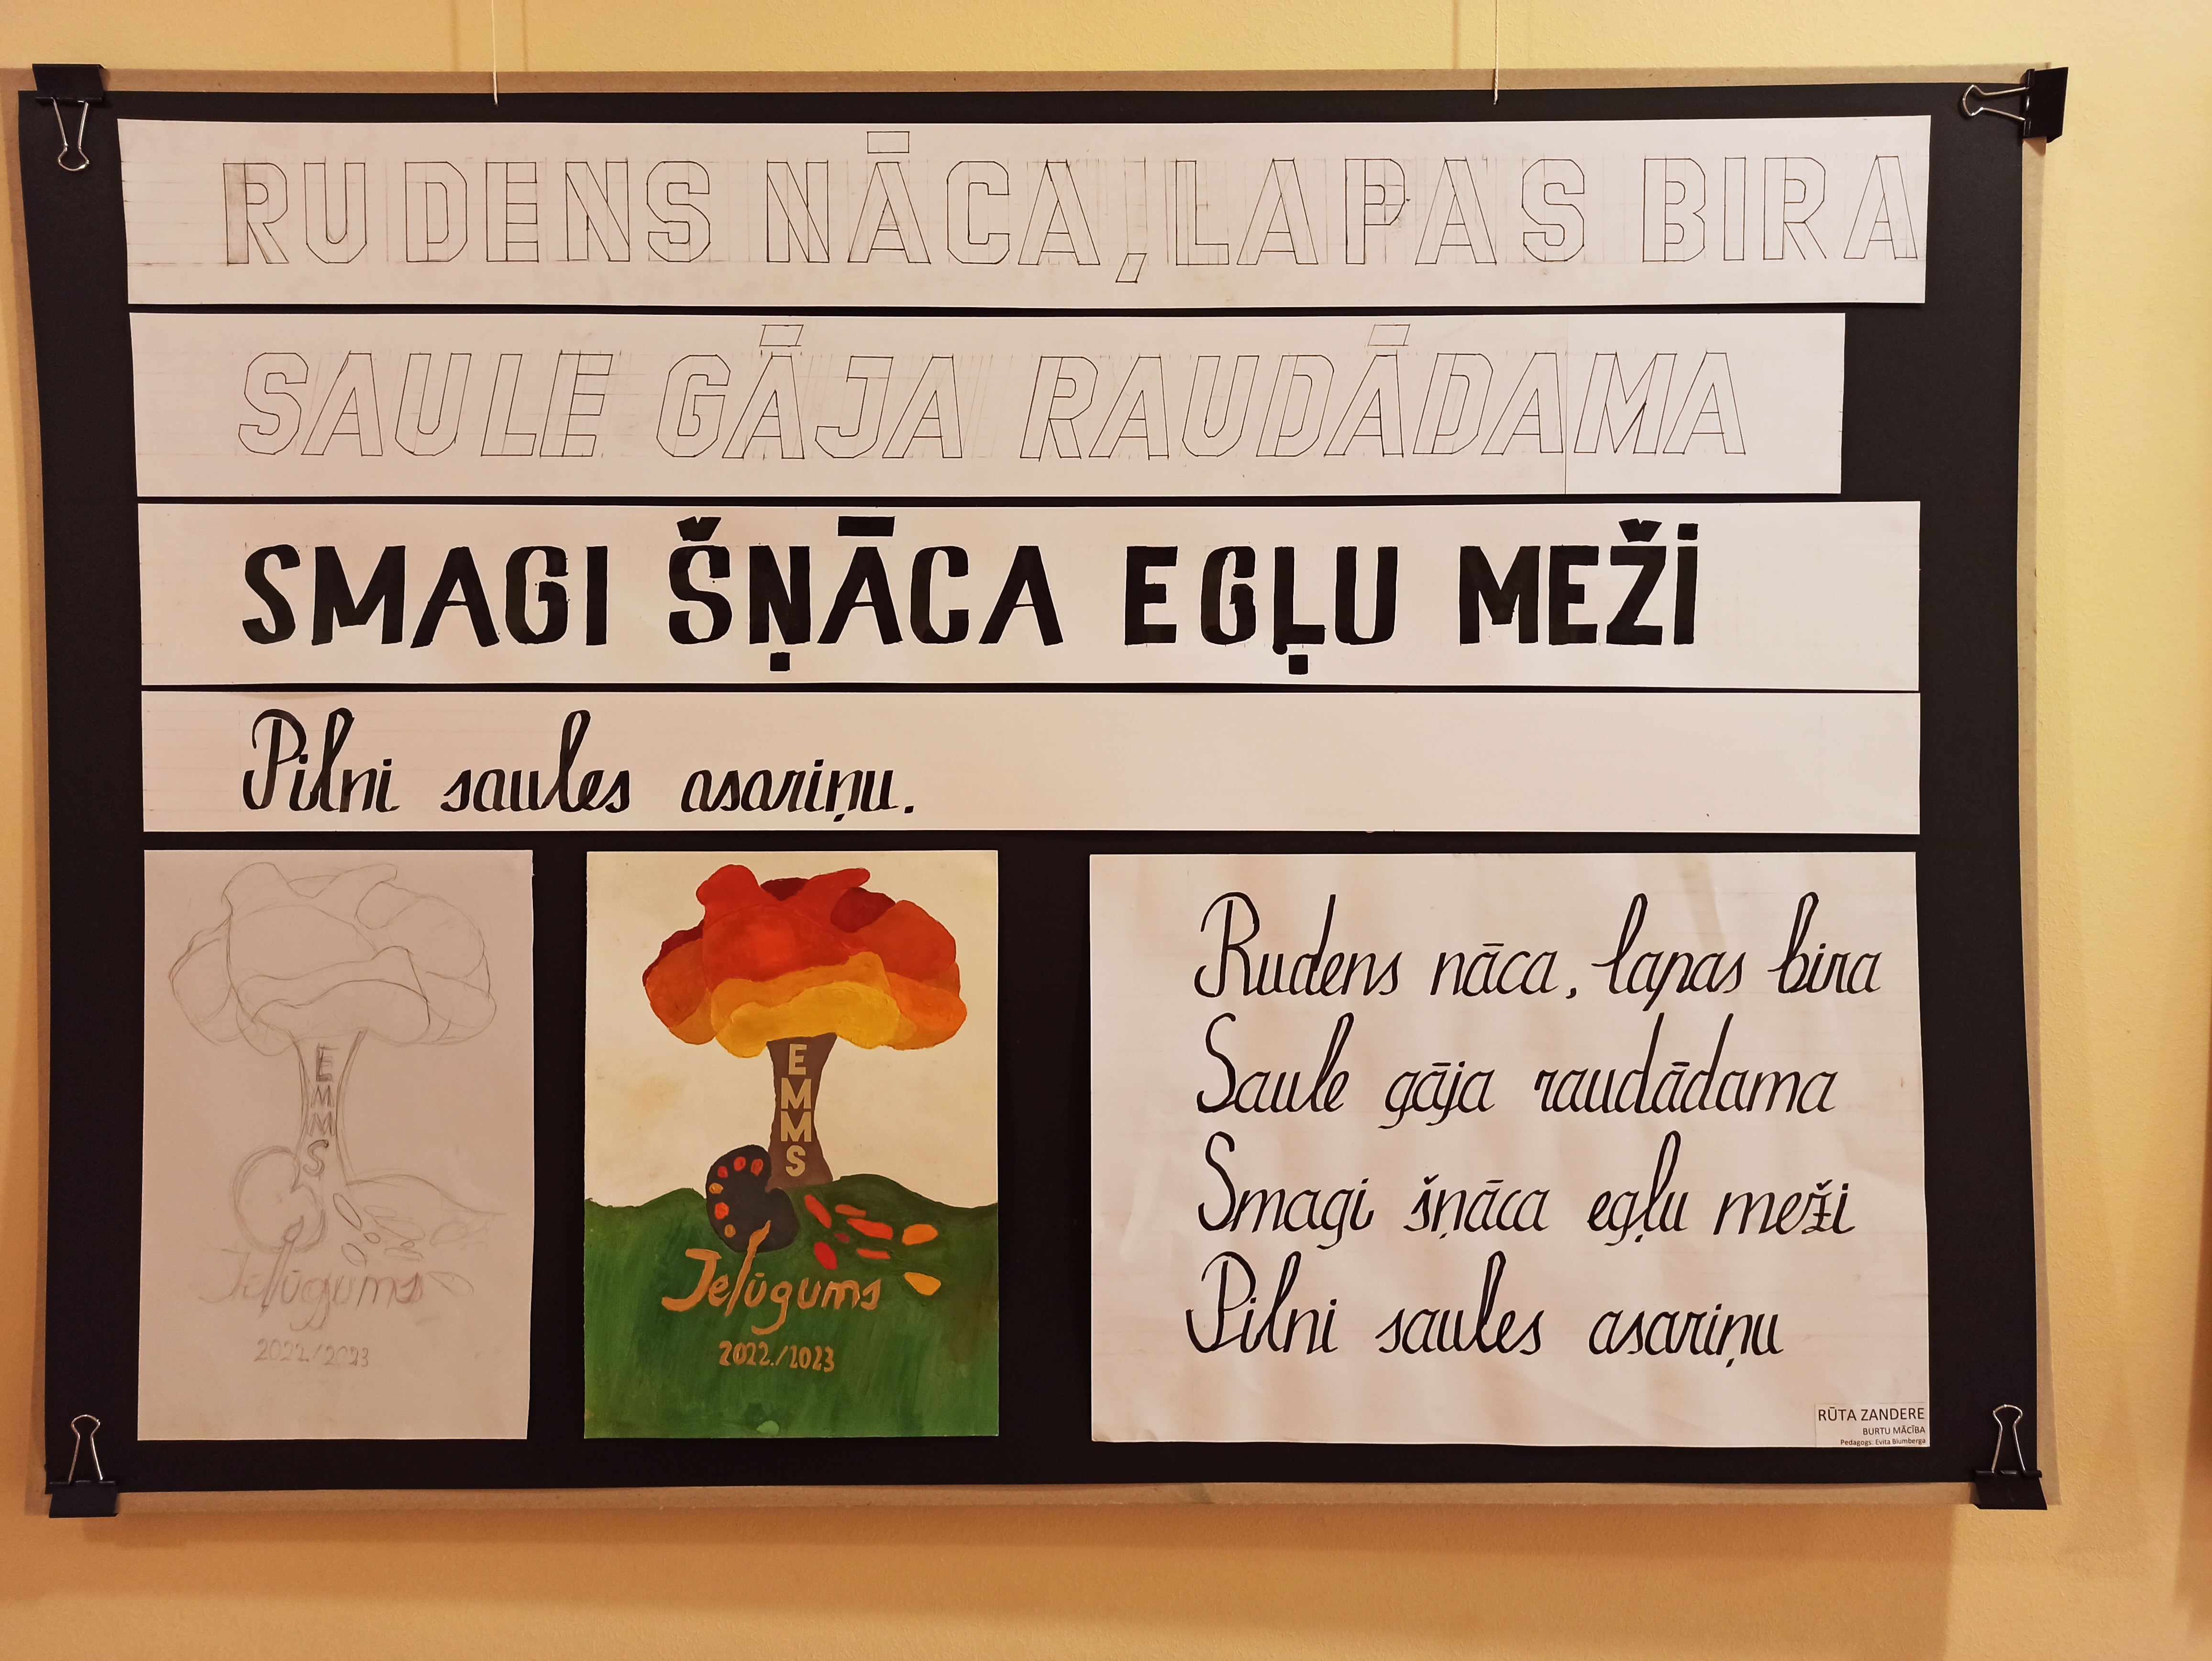 RUDENS NĀCA, LAPAS BIRA
SAULE GĀJA RAUDĀDAMA
SMAGI ŠŅĀCA EGĻU MEŽI
Pilni saules asariņu.
EMMS
Ielūgums
2022./2023
EMMS
Ielūgums
2022./2023
Rudens nāca, lapas bira
Saule gāja raudādama
Smagi šņāca egļu meži
Pilni saules asariņu
RŪTA ZANDERE
BURTU MĀCĪBA
Pedagogs: Evita Blumberga